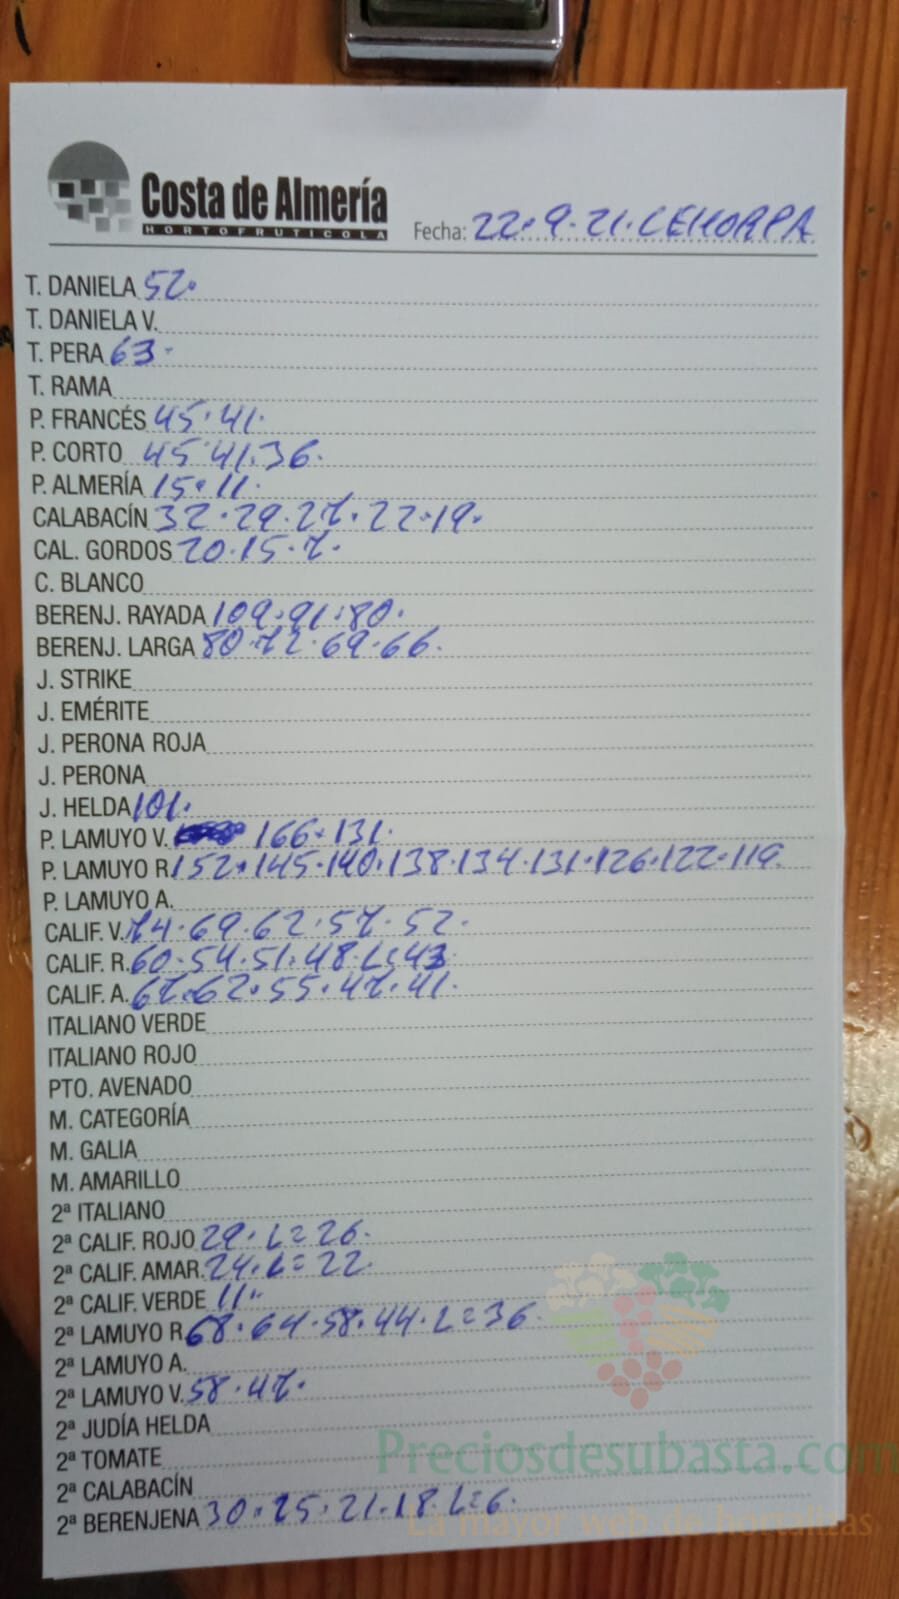 Costa de Almería
HORTOFRUTICOLA
Fecha: 22.9.21. CEHORPA
T. DANIELA 52.
T. DANIELA V.
T. PERA 63.
T. RAMA
P. FRANCÉS 45.41.
P. CORTO 45.41.36.
P. ALMERÍA 15.11.
CALABACÍN 32.29.27.22.19.
CAL. GORDOS 20.15.7.
C. BLANCO
BERENJ. RAYADA 109.91.80.
BERENJ. LARGA 80.72.69.66.
J. STRIKE
J. EMÉRITE
J. PERONA ROJA
J. PERONA
J. HELDA 101.
P. LAMUYO V. 166.131.
P. LAMUYO R. 152.145.140.138.134.131.126.122.119.
P. LAMUYO A.
CALIF. V. 74.69.62.57.52.
CALIF. R. 60.54.51.48.L=43
CALIF. A. 67.62.55.47.41.
ITALIANO VERDE
ITALIANO ROJO
PTO. AVENADO
M. CATEGORÍA
M. GALIA
M. AMARILLO
2ª ITALIANO
2ª CALIF. ROJO 29.L=26.
2ª CALIF. AMAR. 24.L=22.
2ª CALIF. VERDE 11.
2ª LAMUYO R. 68.64.58.44.L=36.
2ª LAMUYO A.
2ª LAMUYO V. 58.47.
2ª JUDÍA HELDA
2ª TOMATE
2ª CALABACÍN
2ª BERENJENA 30.25.21.18.L=6.
Preciosdesubasta.com
La mayor web de hortalizas